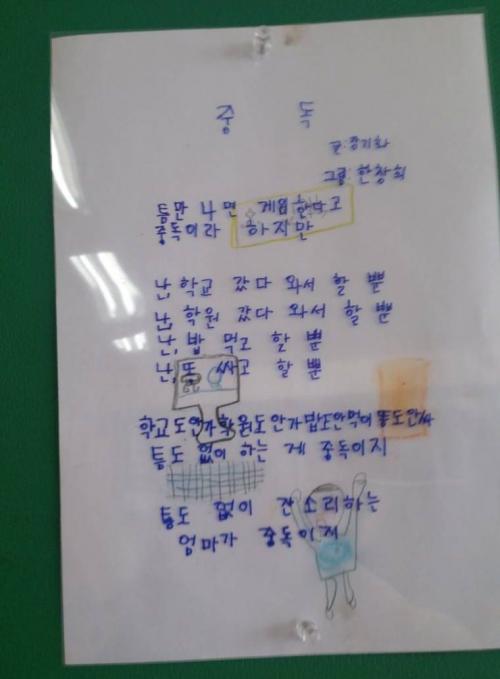 중 독
글:정기화
그림:한창희
틈만 나면 게임한다고
중독이라 하지만
난, 학교 갔다 와서 할 뿐
난, 학원 갔다 와서 할 뿐
난, 밥 먹고 할 뿐
난, 또 싸고 할 뿐
학교도안가학원도안가밥도안먹어똥도안싸
틈도 없이 하는 게 중독이지
틈도 없이 잔소리하는
엄마가 중독이지